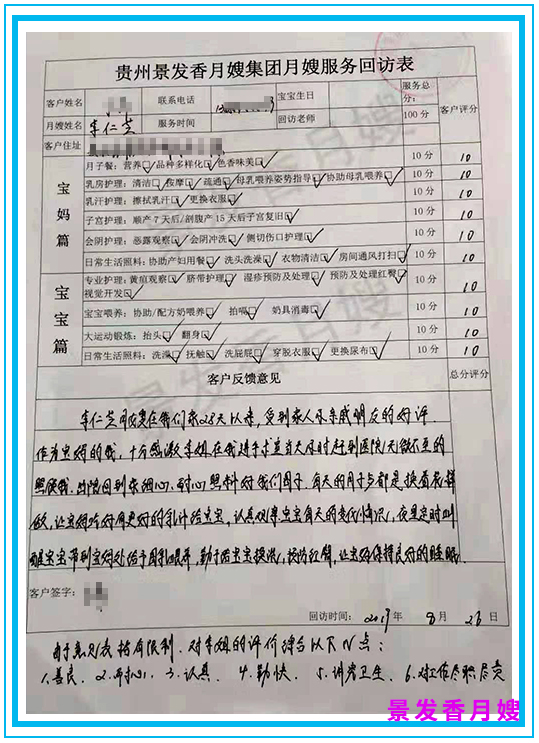 贵州景发香月嫂集团月嫂服务回访表
客户姓名 联系电话 宝宝生日 服务总分: 客户评分
月嫂姓名 李仁芝 服务时间 回访老师 100分
客户住址
宝妈篇
月子餐:营养□ 品种多样化□ 色香味美□ 10分 10
乳房护理:清洁□ 按摩□ 疏通□ 母乳喂养姿势指导□ 协助母乳喂养□ 10分 10
乳汗护理:擦拭乳汗□ 更换衣服□ 10分 10
子宫护理:顺产7天后/剖腹产15天后子宫复旧□ 10分 10
会阴护理:恶露观察□ 会阴冲洗□ 侧切伤口护理□ 10分 10
日常生活照料:协助产妇用餐□ 洗头洗澡□ 衣物清洁□ 房间通风打扫□ 10分 10
宝宝篇
专业护理:黄疸观察□ 脐带护理□ 湿疹预防及处理□ 预防及处理红臀□ 视觉开发□ 10分 10
宝宝喂养:协助/配方奶喂养□ 拍嗝□ 奶具消毒□ 10分 10
大运动锻炼:抬头□ 翻身□ 10分 10
日常生活照料:洗澡□ 抚触□ 洗屁屁□ 穿脱衣服□ 更换尿布□ 10分 10
客户反馈意见 总分评分
李仁芝月嫂在我们家28天以来,受到家人及亲戚朋友的好评
作为宝妈的我,十分感激李姐在我进手术室当天及时赶到医院
照顾我.出院回到家细心.耐心照料好我们母子.每天的月子
让宝妈 更好的乳汁给宝宝,认真观察宝宝每天的变化情况,夜里定时叫
醒宝宝 带到宝妈处给予母乳喂养,勤于给宝宝换洗,预防红臀,让宝妈保持良好的睡眠.
客户签字:
回访时间: 2019年 8月 26日
由于意见表格有限制.对李姐的评价综合以下N点:
1.善良. 2.耐心 3.认真 4.勤快. 5.讲究卫生. 6.对工作尽职尽责
景发香月嫂
景发香月嫂
景发香月嫂